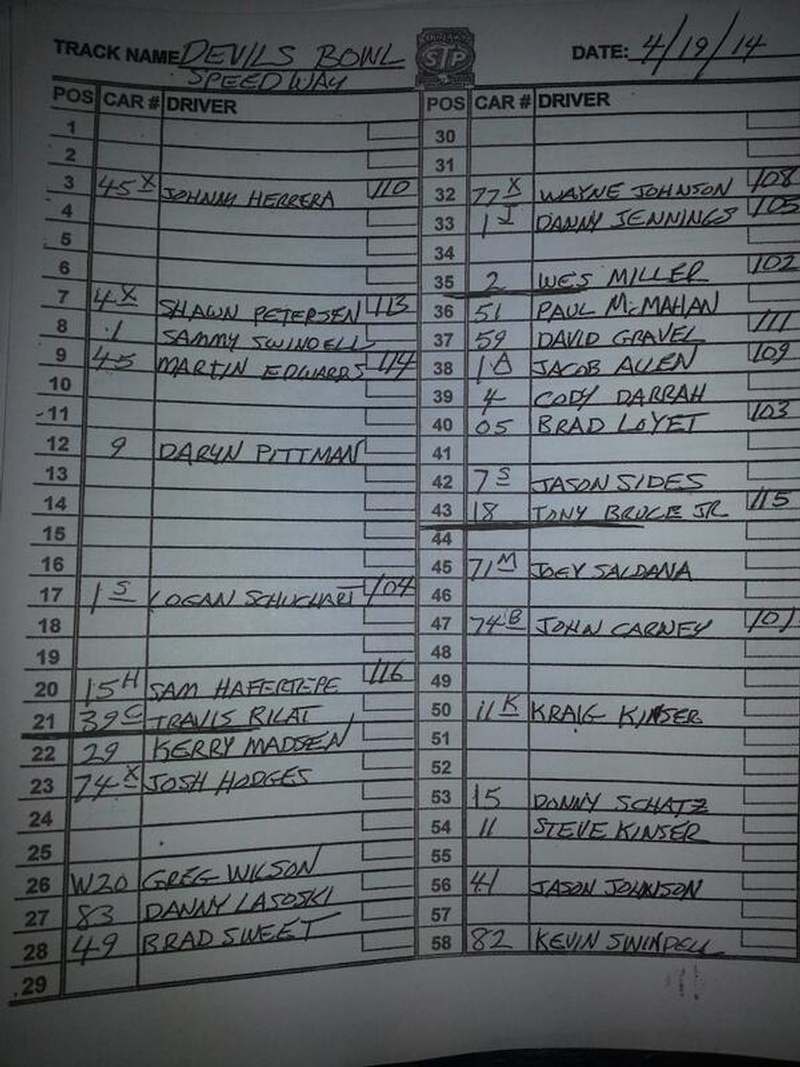 TRACK NAME DEVILS BOWL SPEEDWAY
STP
DATE: 4/19/14
POS CAR # DRIVER
1
2
3 45X JOHNNY HERRERA 110
4
5
6
7 4X SHAWN PETERSEN 113
8 1 SAMMY SWINDELL
9 45 MARTIN EDWARDS 114
10
11
12 9 DARYN PITTMAN
13
14
15
16
17 1S LOGAN SCHUCHART 104
18
19
20 15H SAM HAFERTEPE 116
21 39C TRAVIS RILAT
22 29 KERRY MADSEN
23 74X JOSH HODGES
24
25
26 W20 GREG WILSON
27 83 DANNY LASOSKI
28 49 BRAD SWEET
29
POS CAR # DRIVER
30
31
32 77X WAYNE JOHNSON 108
33 1J DANNY JENNINGS 105
34
35 2 WES MILLER 102
36 51 PAUL McMAHAN
37 59 DAVID GRAVEL 111
38 1A JACOB ALLEN 109
39 4 CODY DARRAH
40 05 BRAD LOYET 103
41
42 7S JASON SIDES
43 18 TONY BRUCE JR 115
44
45 71M JOEY SALDANA
46
47 74B JOHN CARNEY 101
48
49
50 11K KRAIG KINSER
51
52
53 15 DONNY SCHATZ
54 11 STEVE KINSER
55
56 41 JASON JOHNSON
57
58 82 KEVIN SWINDELL